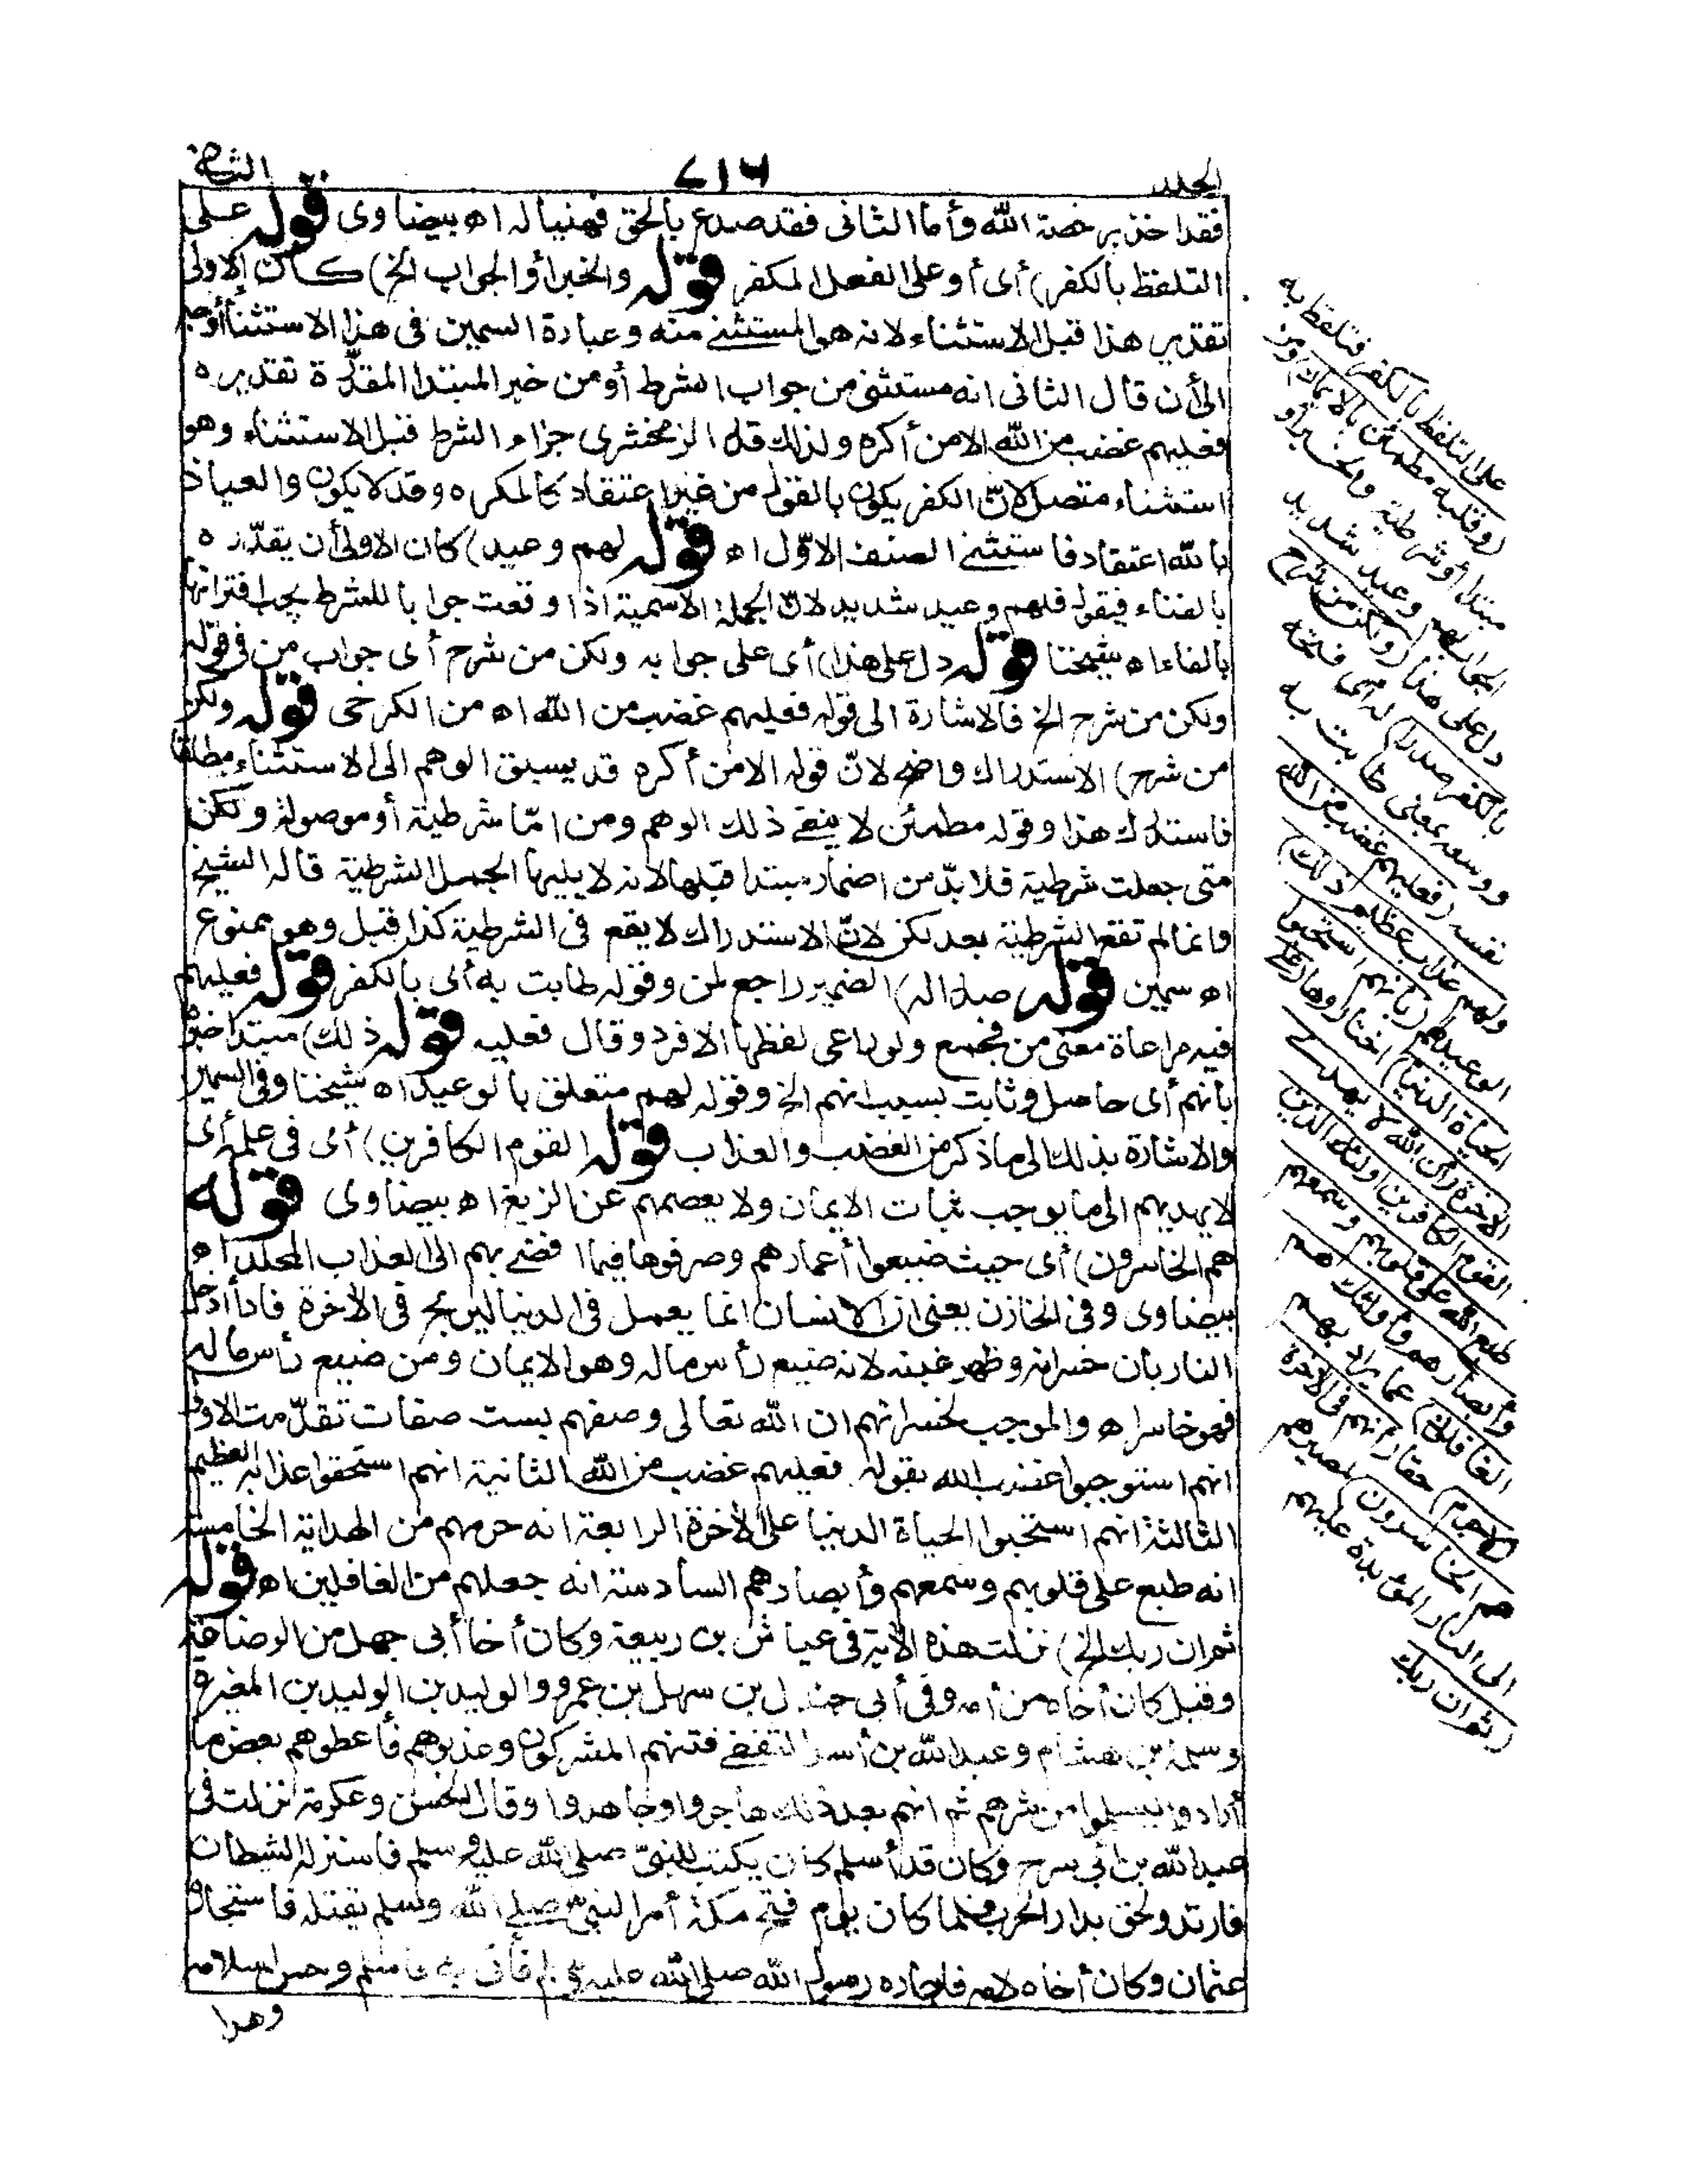 الجلد
٧١٦
الثانى
فقد أخذ برخصة الله وأما الثانى فقد صدع بالحق فهنيأ له اه بيضاوى قوله على
التلفظ بالكفر) أى أو على الفعل المكفر قوله والخبر أو الجواب الخ) كان الاولى
تقدير هذا قبل الاستثناء لانه هو المستثنى منه وعبارة السمين فى هذا الاستثناء أوجه
الى أن قال الثانى انه مستثنى من جواب الشرط أو من خبر المبتدا المقدّرة تقديره
فعليهم غضب من الله الا من أكره ولذلك قدر الزمخشرى جزاء الشرط قبل الاستثناء وهو
استثناء متصل لانّ الكفر يكون بالقول من غير اعتقاد كالمكره وقد لا يكون والعياذ
بالله اعتقاد فاستثنى الصنف الاوّل اه قوله لهم وعيد) كان الاولى أن يقدّره
بالفاء فيقول فلهم وعيد شديد لانّ الجملة الاسمية اذا وقعت جوابا للشرط يجب اقترانها
بالفاء اه شيخنا قوله دل على هذا) أى على جوابه ولكن من شرح أى جواب من فى قوله
ولكن من شرح الخ فالاشارة الى قوله فعليهم غضب من الله اه من الكرخى قوله ولكن
من شرح) الاستدراك واضح لانّ قوله الا من أكره قد يسبق الوهم الى الاستثناء مطلقا
فاستدرك هذا وقوله مطمئن لا ينفى ذلك الوهم ومن امّا شرطية أو موصولة ولكن
متى جعلت شرطية فلا بدّ من اضمار مبتدا قبلها لانه لا يليها الجمل الشرطية قاله الشيخ
وانما لم تقع الشرطية بعد لكن لانّ الاستدراك لا يقع فى الشرطية كذا قيل وهو ممنوع
اه سمين قوله صدرا له) الضمير راجع لمن وقوله طابت به أى بالكفر قوله فعليهم
فيه مراعاة معنى من فجمع ولو راعى لفظها لافرد وقال فعليه قوله ذلك) مبتدا خبره
بأنهم أى حاصل وثابت بسبب انهم الخ وقوله لهم متعلق بالوعيد اه شيخنا وفى السمين
والاشارة بذلك الى ما ذكر من الغضب والعذاب قوله القوم الكافرين) أى فى علمه أى
لا يهديهم الى ما يوجب ثبات الايمان ولا يعصمهم عن الزيغ اه بيضاوى قوله
هم الخاسرون) أى حيث ضيعوا أعمارهم وصرفوها فيما أفضى بهم الى العذاب المخلد اه
بيضاوى وفى الخازن يعنى ان الانسان انما يعمل فى الدنيا ليربح فى الآخرة فاذا أدخل
النار بان خسرانه وظهر غبنه لانه ضيع رأس ماله وهو الايمان ومن ضيع رأس ماله
فهو خاسر اه والموجب لخسرانهم ان الله تعالى وصفهم بست صفات تقدّمت الاولى
انهم استوجبوا غضب الله بقوله فعليهم غضب من الله الثانية انهم استحقوا عذابه العظيم
الثالثة انهم استحبوا الحياة الدنيا على الآخرة الرابعة انه حرمهم من الهداية الخامسة
انه طبع على قلوبهم وسمعهم وأبصارهم السادسة انه جعلهم من الغافلين اه قوله
ثم ان ربك الخ) نزلت هذه الآية فى عياش بن ربيعة وكان أخا أبى جهل من الرضاعة
وقيل كان أخاه من أمه وفى أبى جندل بن سهل بن عمرو والوليد بن الوليد بن المغيرة
وسلمة بن هشام وعبد الله بن أسد الثقفى فتنهم المشركون وعذبوهم فأعطوهم بعض ما
أرادوا ليسلموا من شرهم ثم انهم بعد ذلك هاجروا وجاهدوا وقال الحسن وعكرمة نزلت فى
عبد الله بن أبى سرح وكان قد أسلم كان يكتب للنبىّ صلى الله عليه وسلم فاستزله الشيطان
فارتد ولحق بدار الحرب فلما كان يوم فتح مكة أمر النبى صلى الله وسلم بقتله فاستجار
عثمان وكان أخاه لامه فاجاره رسول الله صلى الله عليه وسلم فأتى به فاسلم وحسن اسلامه
وهذا
على التلفظ بالكفر فتلفظ به
(وقلبه مطمئن بالايمان) ومن
مبتدأ أو شرطية والخبر أو
الجواب لهم وعيد شديد
دل على هذا (ولكن من شرح
بالكفر صدرا) له أى فتحه
ووسعه بمعنى طابت به
نفسه (فعليهم غضب من الله
ولهم عذاب عظيم ذلك)
الوعيد لهم (بأنهم استحبوا
الحياة الدنيا) اختاروها (على
الآخرة وأن الله لا يهدى
القوم الكافرين أولئك الذين
طبع الله على قلوبهم وسمعهم
وأبصارهم وأولئك هم
الغافلون) عما يراد بهم
(لا جرم) حقا (أنهم فى الآخرة
هم الخاسرون) لمصيرهم
الى النار المؤبدة عليهم
(ثم ان ربك